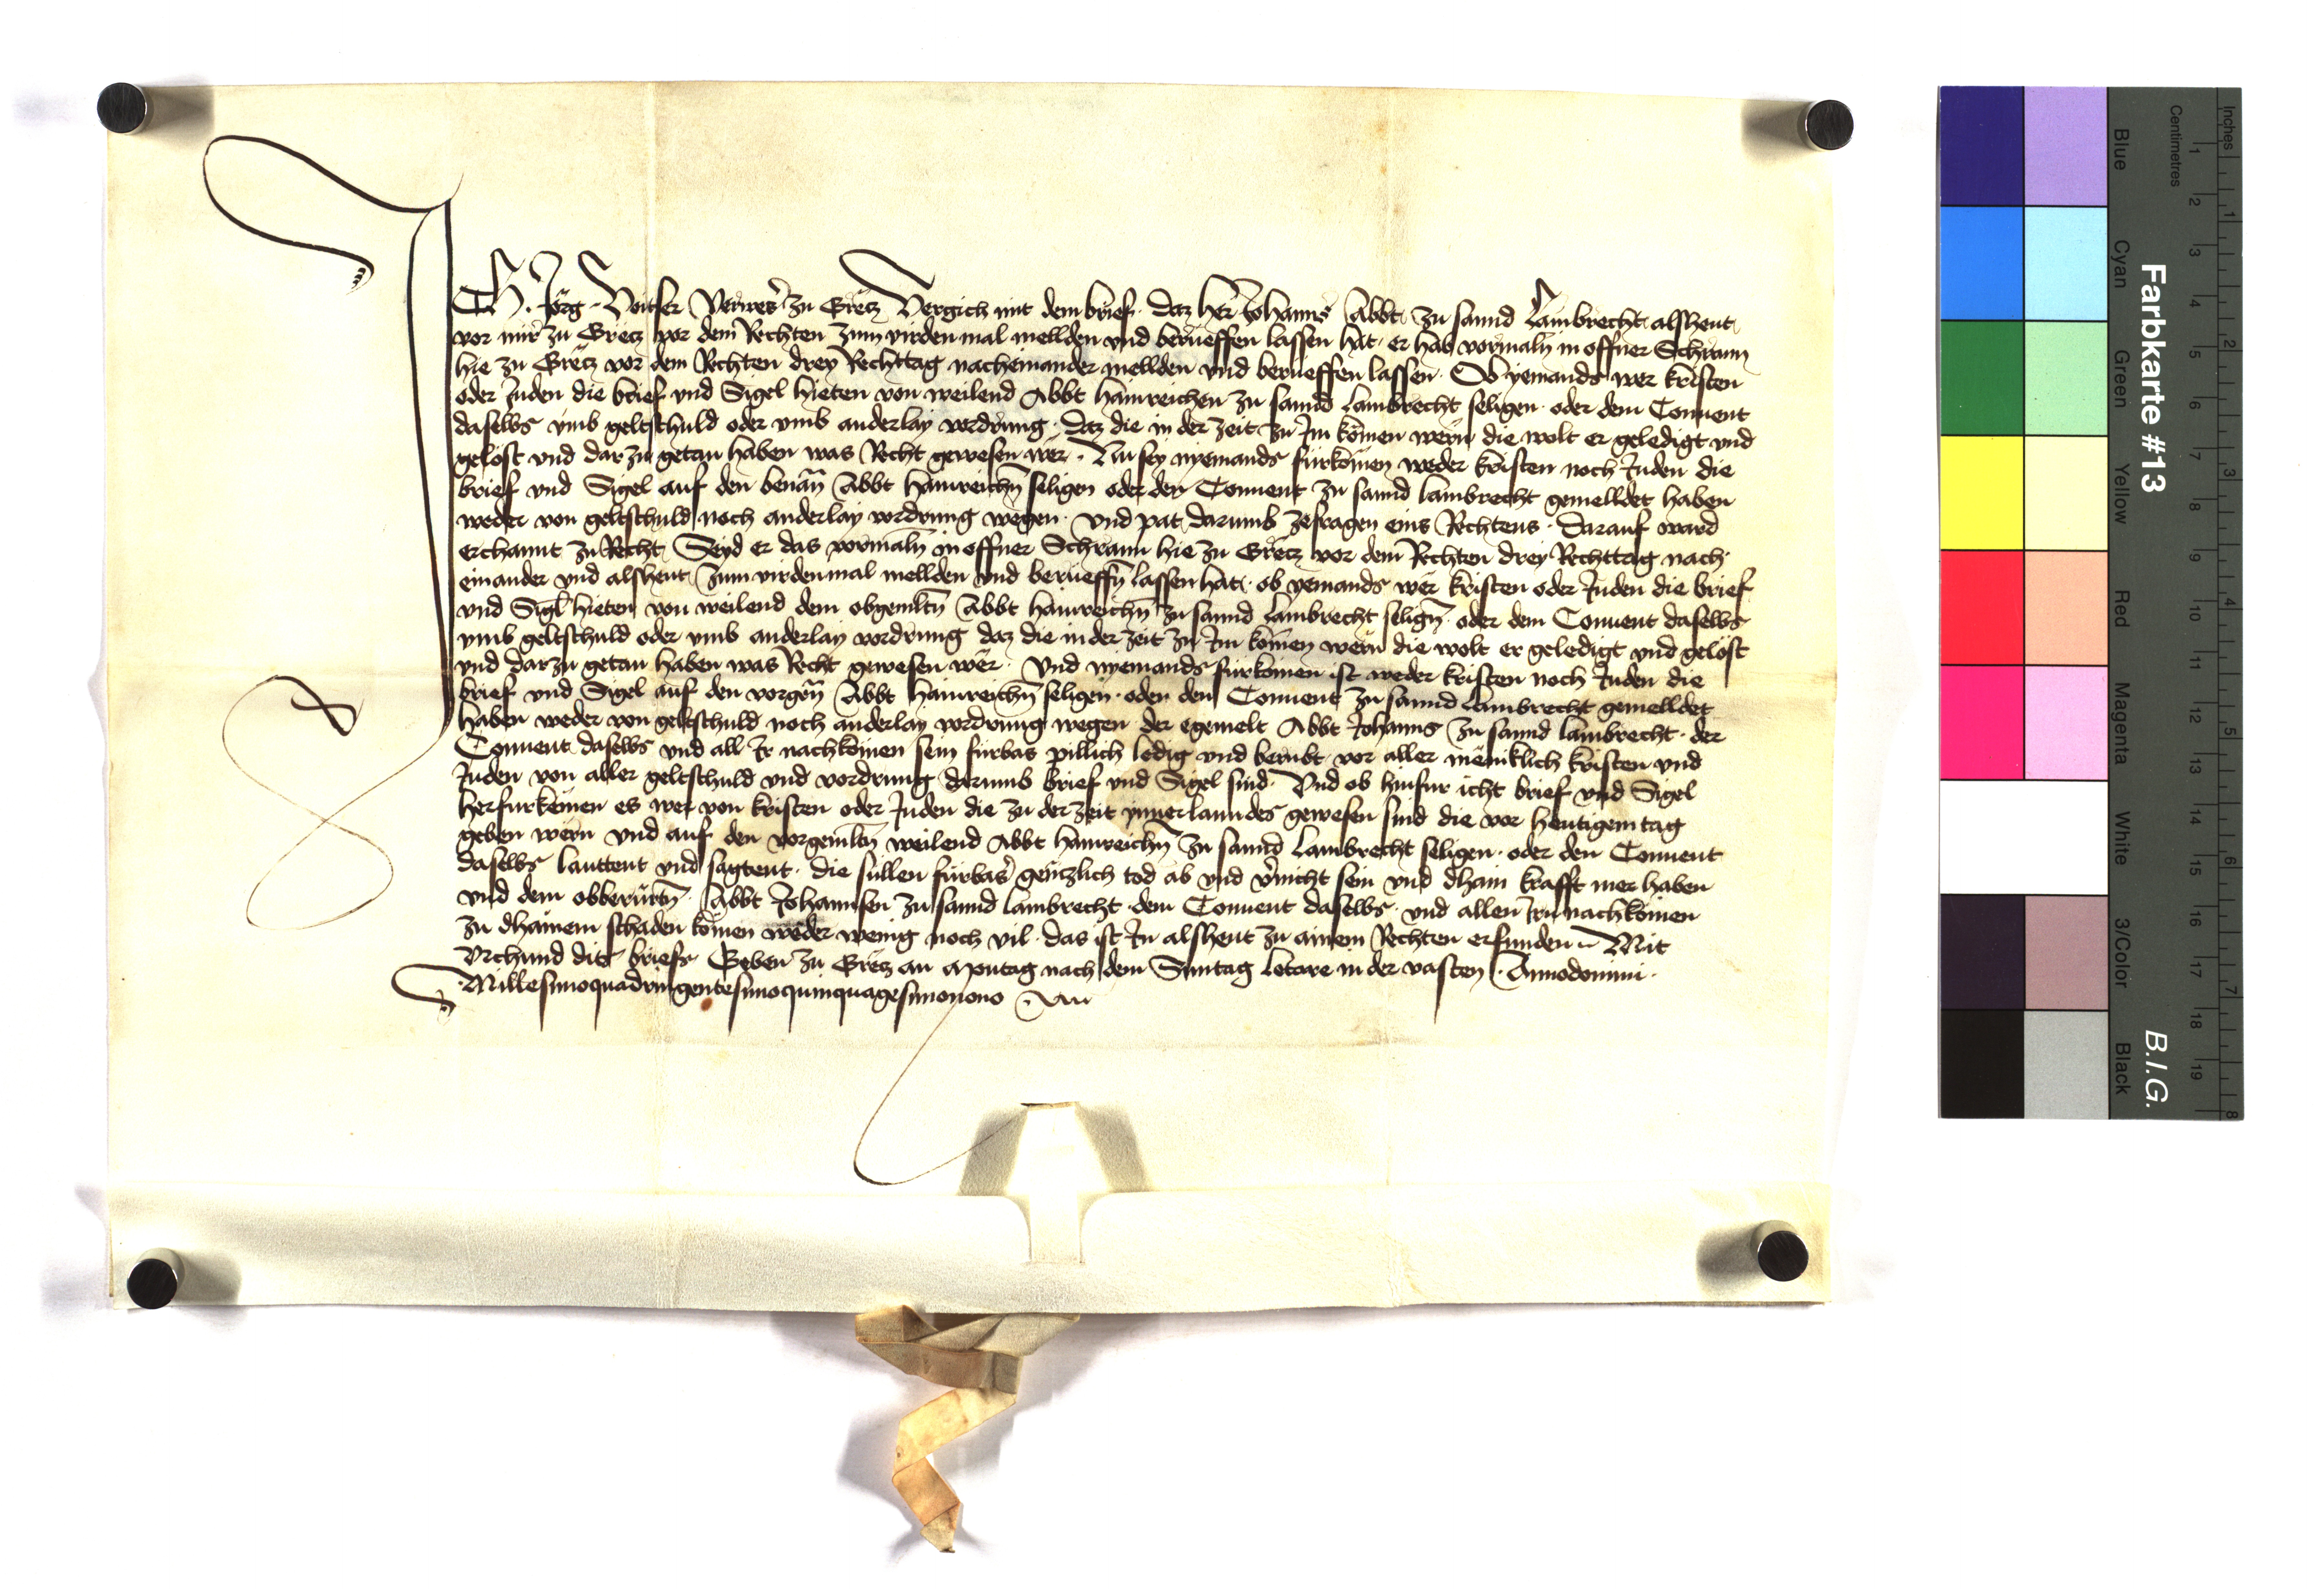 ICh Jörg Voitser Verweser zu Grëtz Vergich mit dem brief daz her Johanns Abbt zu sannd Lambrecht alsheut
vor mir zu Gretz vor dem Rechten zum virden mal mellden und berueffen lassen hat er hab vormaln in offner Schrann
hie zu Grëtz vor dem Rechten drey Rechttag nacheinander mellden und berueffen lassen Ob yemands wer kristen
oder Juden die brief und Sigel hieten von weilend Abbt Hainreichen zu sannd Lambrecht seligen oder dem Convent
daselbs umb geltschuld oder umb anderlay vordrung daz die in der zeit zu Im kömen wern die wolt er geledigt und
gelöst und darzu getan haben was Recht gewesen wër Nu sey nyemands fürkömen weder kristen noch Juden die
brief und Sigel auf den benan Abbt Hainreichn seligen oder den Convent zu sannd Lambrecht gemelldet haben
weder von geltschuld noch anderlay vordrung wegen und pat darumb zefragen eins Rechtens Darauf ward
erchannt zu Recht Seyd er das vormaln in offner Schrann hie zu Grëtz vor dem Rechten drey Rechttag nach
einander und alsheut zum virdenmal mellden und berueffn lassen hat ob yemands wër kristen oder Juden die brief
und Sigl hieten von weilend dem obgemltn Abbt Hainreichn zu sannd Lambrecht selign oder dem Convent daselbs
umb geltschuld oder umb anderlay vordrung daz die in der zeit zu Im kömen wern die wolt er geledigt und gelöst
und darzu getan haben was Recht gewesen wër Und nyemands fürkömen ist weder kristen noch Juden die
brief und Sigel auf den vorgen Abbt Hainreichn seligen oder den Convent zu sannd Lambrecht gemelldet
haben weder von geltschuld noch anderlay vordrung wegen der egemelt Abbt Johanns zu sannd Lambrecht der
Convent daselbs und all Ir nachkömen sein fürbas pillich ledig und berubt vor aller mëniklich kristen und
Juden von aller geltschuld und vordrung darumb brief und Sigel sind Und ob hinfur icht brief und Sigel
herfurkëmen es wer von kristen oder Juden die zu der zeit ynner lanndes gewesen sind die vor heutigem tag
geben wërn und auf den vorgemltn weilend Abbt Hainreichn zu sannd Lambrecht seligen oder den Convent
daselbs lauttent und sagtent die sullen fürbas gëntzlich tod ab und vernicht sein und dhain krafft mer haben
und dem obberurtn Abbt Johannsen zu sannd Lambrecht dem Convent daselbs und allen Irn nachkömen
zu dhainem schaden kömen weder wenig noch vil das ist In alsheut zu ainem Rechten erfunden Mit
Urchund dits briefs Geben zu Grëtz an Montag nach dem Sunntag Letare in der vasten Annodomini
Millesimoquadringentesimoquinquagesimonono
Farbkarte #13
B.I.G.
Inches
Centimetres
1 2 3 4 5 6 7 8 9 10 11 12 13 14 15 16 17 18 19
1 2 3 4 5 6 7 8
Blue
Cyan
Green
Yellow
Red
Magenta
White
3/Color
Black